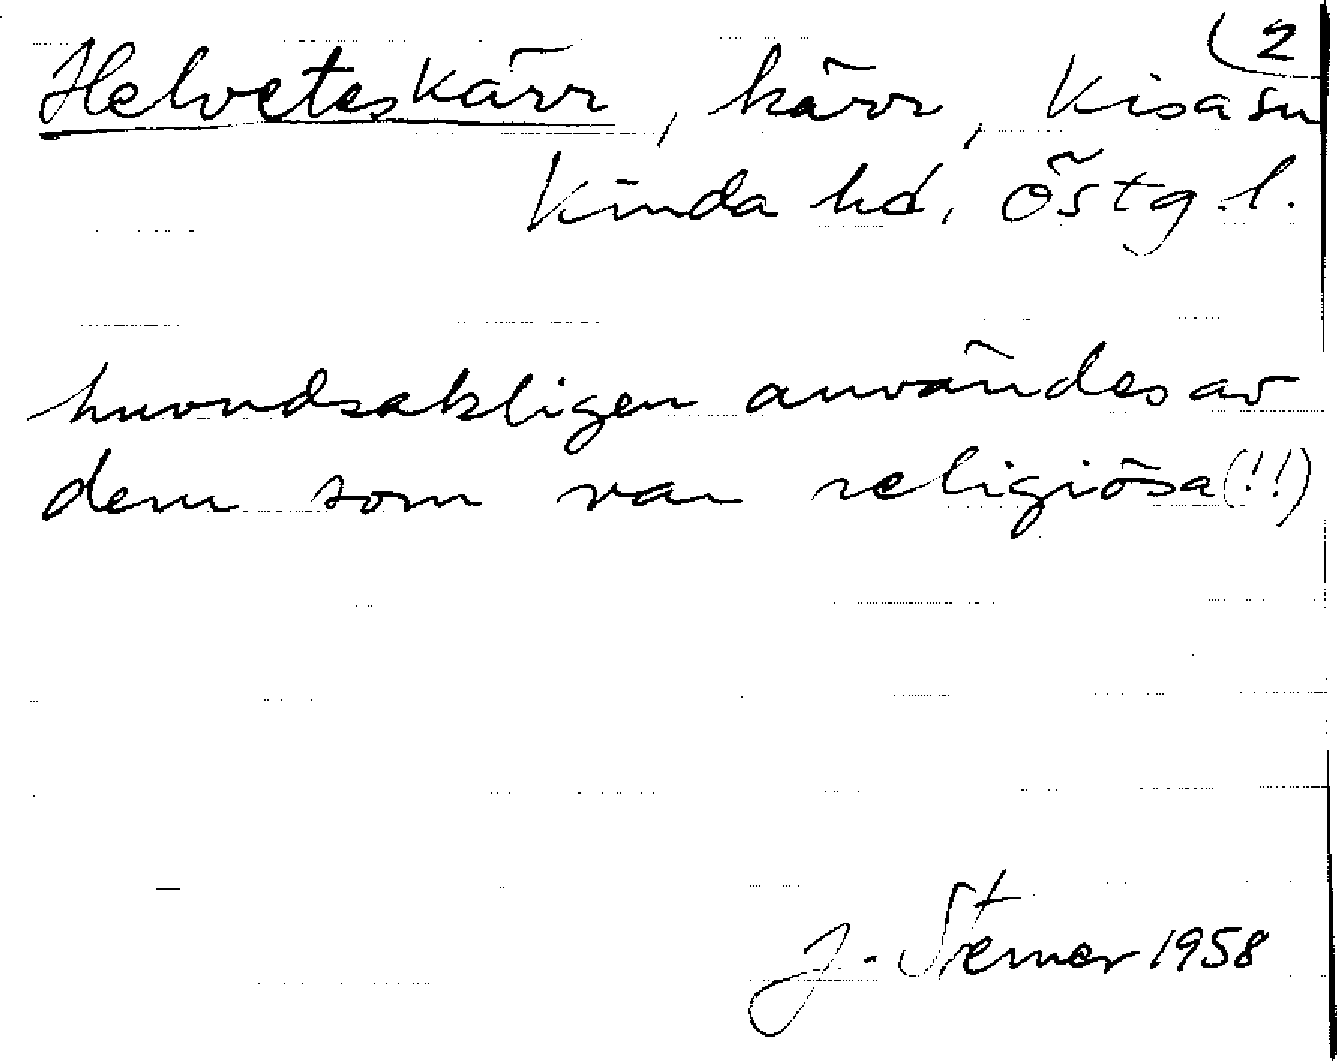 2
Helveteskärr, kärr, Kisa sn
Kinda hd, Östg.l.
huvudsakligen användes av
dem som var religiösa (!!)
J. Sterner 1958